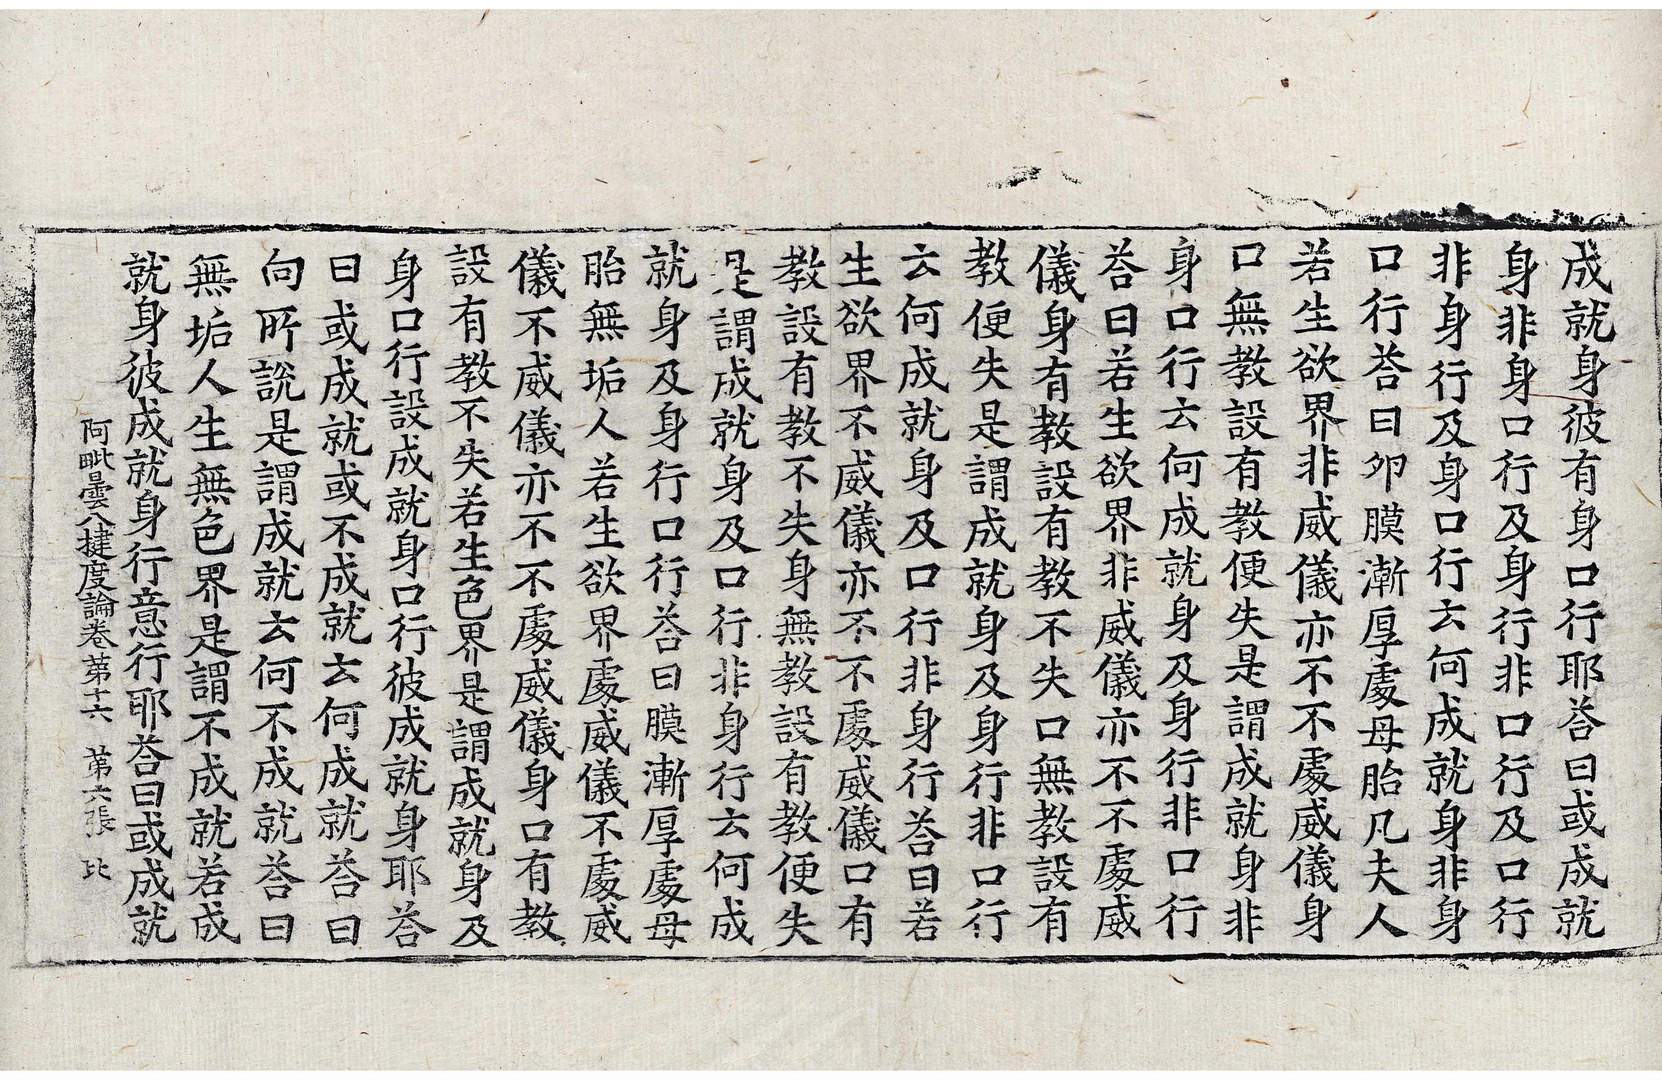 成就身彼有身口行耶荅曰或成就
身非身口行及身行非口行及口行
非身行及身口行云何成就身非身
口行荅曰卵膜漸厚處母胎凡夫人
若生欲界非威儀亦不不處威儀身
口無教設有教便失是謂成就身非
身口行云何成就身及身行非口行
荅曰若生欲界非威儀亦不不處威
儀身有教設有教不失口無教設有
教便失是謂成就身及身行非口行
云何成就身及口行非身行荅曰若
生欲界不威儀亦不不處威儀口有
教設有教不失身無教設有教便失
是謂成就身及口行非身行云何成
就身及身行口行荅曰膜漸厚處母
胎無垢人若生欲界處威儀不處威
儀不威儀亦不不處威儀身口有教
設有教不失若生色界是謂成就身及
身口行設成就身口行彼成就身耶荅
曰或成就或不成就云何成就荅曰
向所說是謂成就云何不成就荅曰
無垢人生無色界是謂不成就若成
就身彼成就身行意行耶荅曰或成就
阿毗曇八揵度論卷第十六 第六張 比